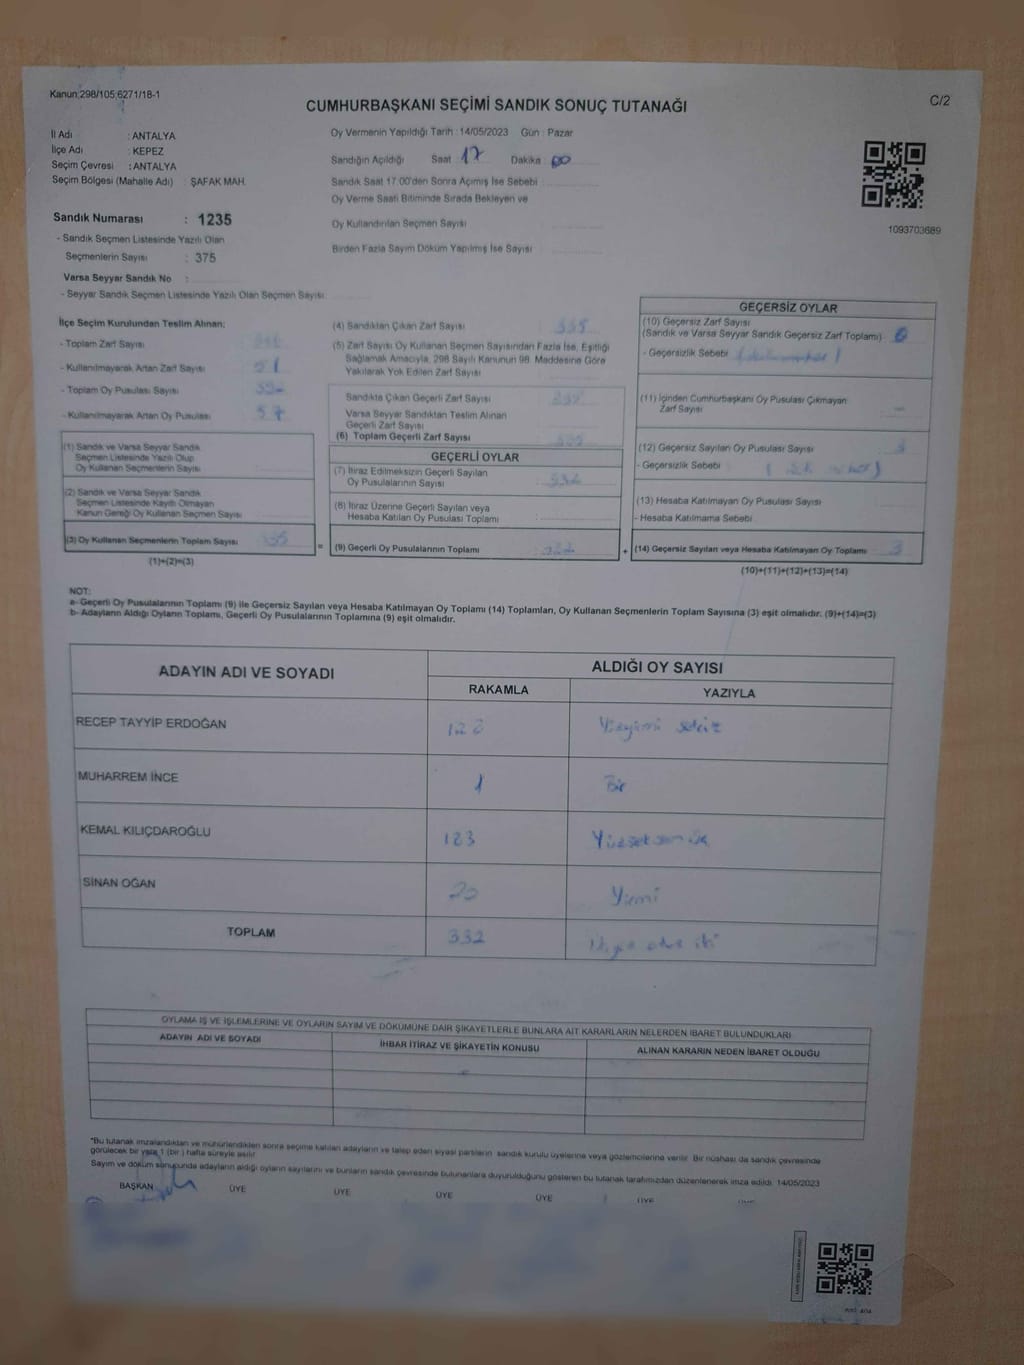 Kanun:298/105;6271/18-1
CUMHURBAŞKANI SEÇİMİ SANDIK SONUÇ TUTANAĞI
C/2
İl Adı : ANTALYA
İlçe Adı : KEPEZ
Seçim Çevresi : ANTALYA
Seçim Bölgesi (Mahalle Adı) : ŞAFAK MAH.
Oy Vermenin Yapıldığı Tarih : 14/05/2023 Gün : Pazar
Sandığın Açıldığı Saat 17 Dakika 00
Sandık Saat 17:00'den Sonra Açımış İse Sebebi :
Oy Verme Saati Bitiminde Sırada Bekleyen ve
Oy Kullandırılan Seçmen Sayısı
Birden Fazla Sayım Döküm Yapılmış İse Sayısı
1093703689
Sandık Numarası : 1235
- Sandık Seçmen Listesinde Yazılı Olan
Seçmenlerin Sayısı : 375
Varsa Seyyar Sandık No :
- Seyyar Sandık Seçmen Listesinde Yazılı Olan Seçmen Sayısı:
İlçe Seçim Kurulundan Teslim Alınan;
- Toplam Zarf Sayısı
- Kullanılmayarak Artan Zarf Sayısı
- Toplam Oy Pusulası Sayısı
- Kullanılmayarak Artan Oy Pusulası 57
(1) Sandık ve Varsa Seyyar Sandık
Seçmen Listesinde Yazılı Olup
Oy Kullanan Seçmenlerin Sayısı
(2) Sandık ve Varsa Seyyar Sandık
Seçmen Listesinde Kayıtlı Olmayan
Kanun Gereği Oy Kullanan Seçmen Sayısı
(3) Oy Kullanan Seçmenlerin Toplam Sayısı 335
(1)+(2)=(3)
(4) Sandıktan Çıkan Zarf Sayısı 335
(5) Zarf Sayısı Oy Kullanan Seçmen Sayısından Fazla İse, Eşitliği
Sağlamak Amacıyla, 298 Sayılı Kanunun 98. Maddesine Göre
Yakılarak Yok Edilen Zarf Sayısı
Sandıkta Çıkan Geçerli Zarf Sayısı 335
Varsa Seyyar Sandıktan Teslim Alınan
Geçerli Zarf Sayısı
(6) Toplam Geçerli Zarf Sayısı 335
GEÇERLİ OYLAR
(7) İtiraz Edilmeksizin Geçerli Sayılan
Oy Pusulalarının Sayısı 332
(8) İtiraz Üzerine Geçerli Sayılan veya
Hesaba Katılan Oy Pusulası Toplamı
= (9) Geçerli Oy Pusulalarının Toplamı 332
GEÇERSİZ OYLAR
(10) Geçersiz Zarf Sayısı
(Sandık ve Varsa Seyyar Sandık Geçersiz Zarf Toplamı)
- Geçersizlik Sebebi
(11) İçinden Cumhurbaşkanı Oy Pusulası Çıkmayan
Zarf Sayısı -
(12) Geçersiz Sayılan Oy Pusulası Sayısı 3
- Geçersizlik Sebebi
(13) Hesaba Katılmayan Oy Pusulası Sayısı
- Hesaba Katılmama Sebebi
+ (14) Geçersiz Sayılan veya Hesaba Katılmayan Oy Toplamı 3
(10)+(11)+(12)+(13)=(14)
NOT:
a- Geçerli Oy Pusulalarının Toplamı (9) ile Geçersiz Sayılan veya Hesaba Katılmayan Oy Toplamı (14) Toplamları, Oy Kullanan Seçmenlerin Toplam Sayısına (3) eşit olmalıdır. (9)+(14)=(3)
b- Adayların Aldığı Oyların Toplamı, Geçerli Oy Pusulalarının Toplamına (9) eşit olmalıdır.
ADAYIN ADI VE SOYADI
ALDIĞI OY SAYISI
RAKAMLA YAZIYLA
RECEP TAYYİP ERDOĞAN Yüzyirmi sekiz
MUHARREM İNCE 1 Bir
KEMAL KILIÇDAROĞLU 183 Yüzseksen üç
SİNAN OĞAN 20 Yirmi
TOPLAM 332
OYLAMA İŞ VE İŞLEMLERİNE VE OYLARIN SAYIM VE DÖKÜMÜNE DAİR ŞİKAYETLERLE BUNLARA AİT KARARLARIN NELERDEN İBARET BULUNDUKLARI
ADAYIN ADI VE SOYADI İHBAR İTİRAZ VE ŞİKAYETİN KONUSU ALINAN KARARIN NEDEN İBARET OLDUĞU
*Bu tutanak imzalandıktan ve mühürlendikten sonra seçime katılan adayların ve talep eden siyasi partilerin sandık kurulu üyelerine veya gözlemcilerine verilir. Bir nüshası da sandık çevresinde
görülecek bir yere 1 (bir ) hafta süreyle asılır.
Sayım ve döküm sonucunda adayların aldığı oyların sayılarını ve bunların sandık çevresinde bulunanlara duyurulduğunu gösteren bu tutanak tarafımızdan düzenlenerek imza edildi. 14/05/2023
BAŞKAN ÜYE ÜYE ÜYE ÜYE ÜYE